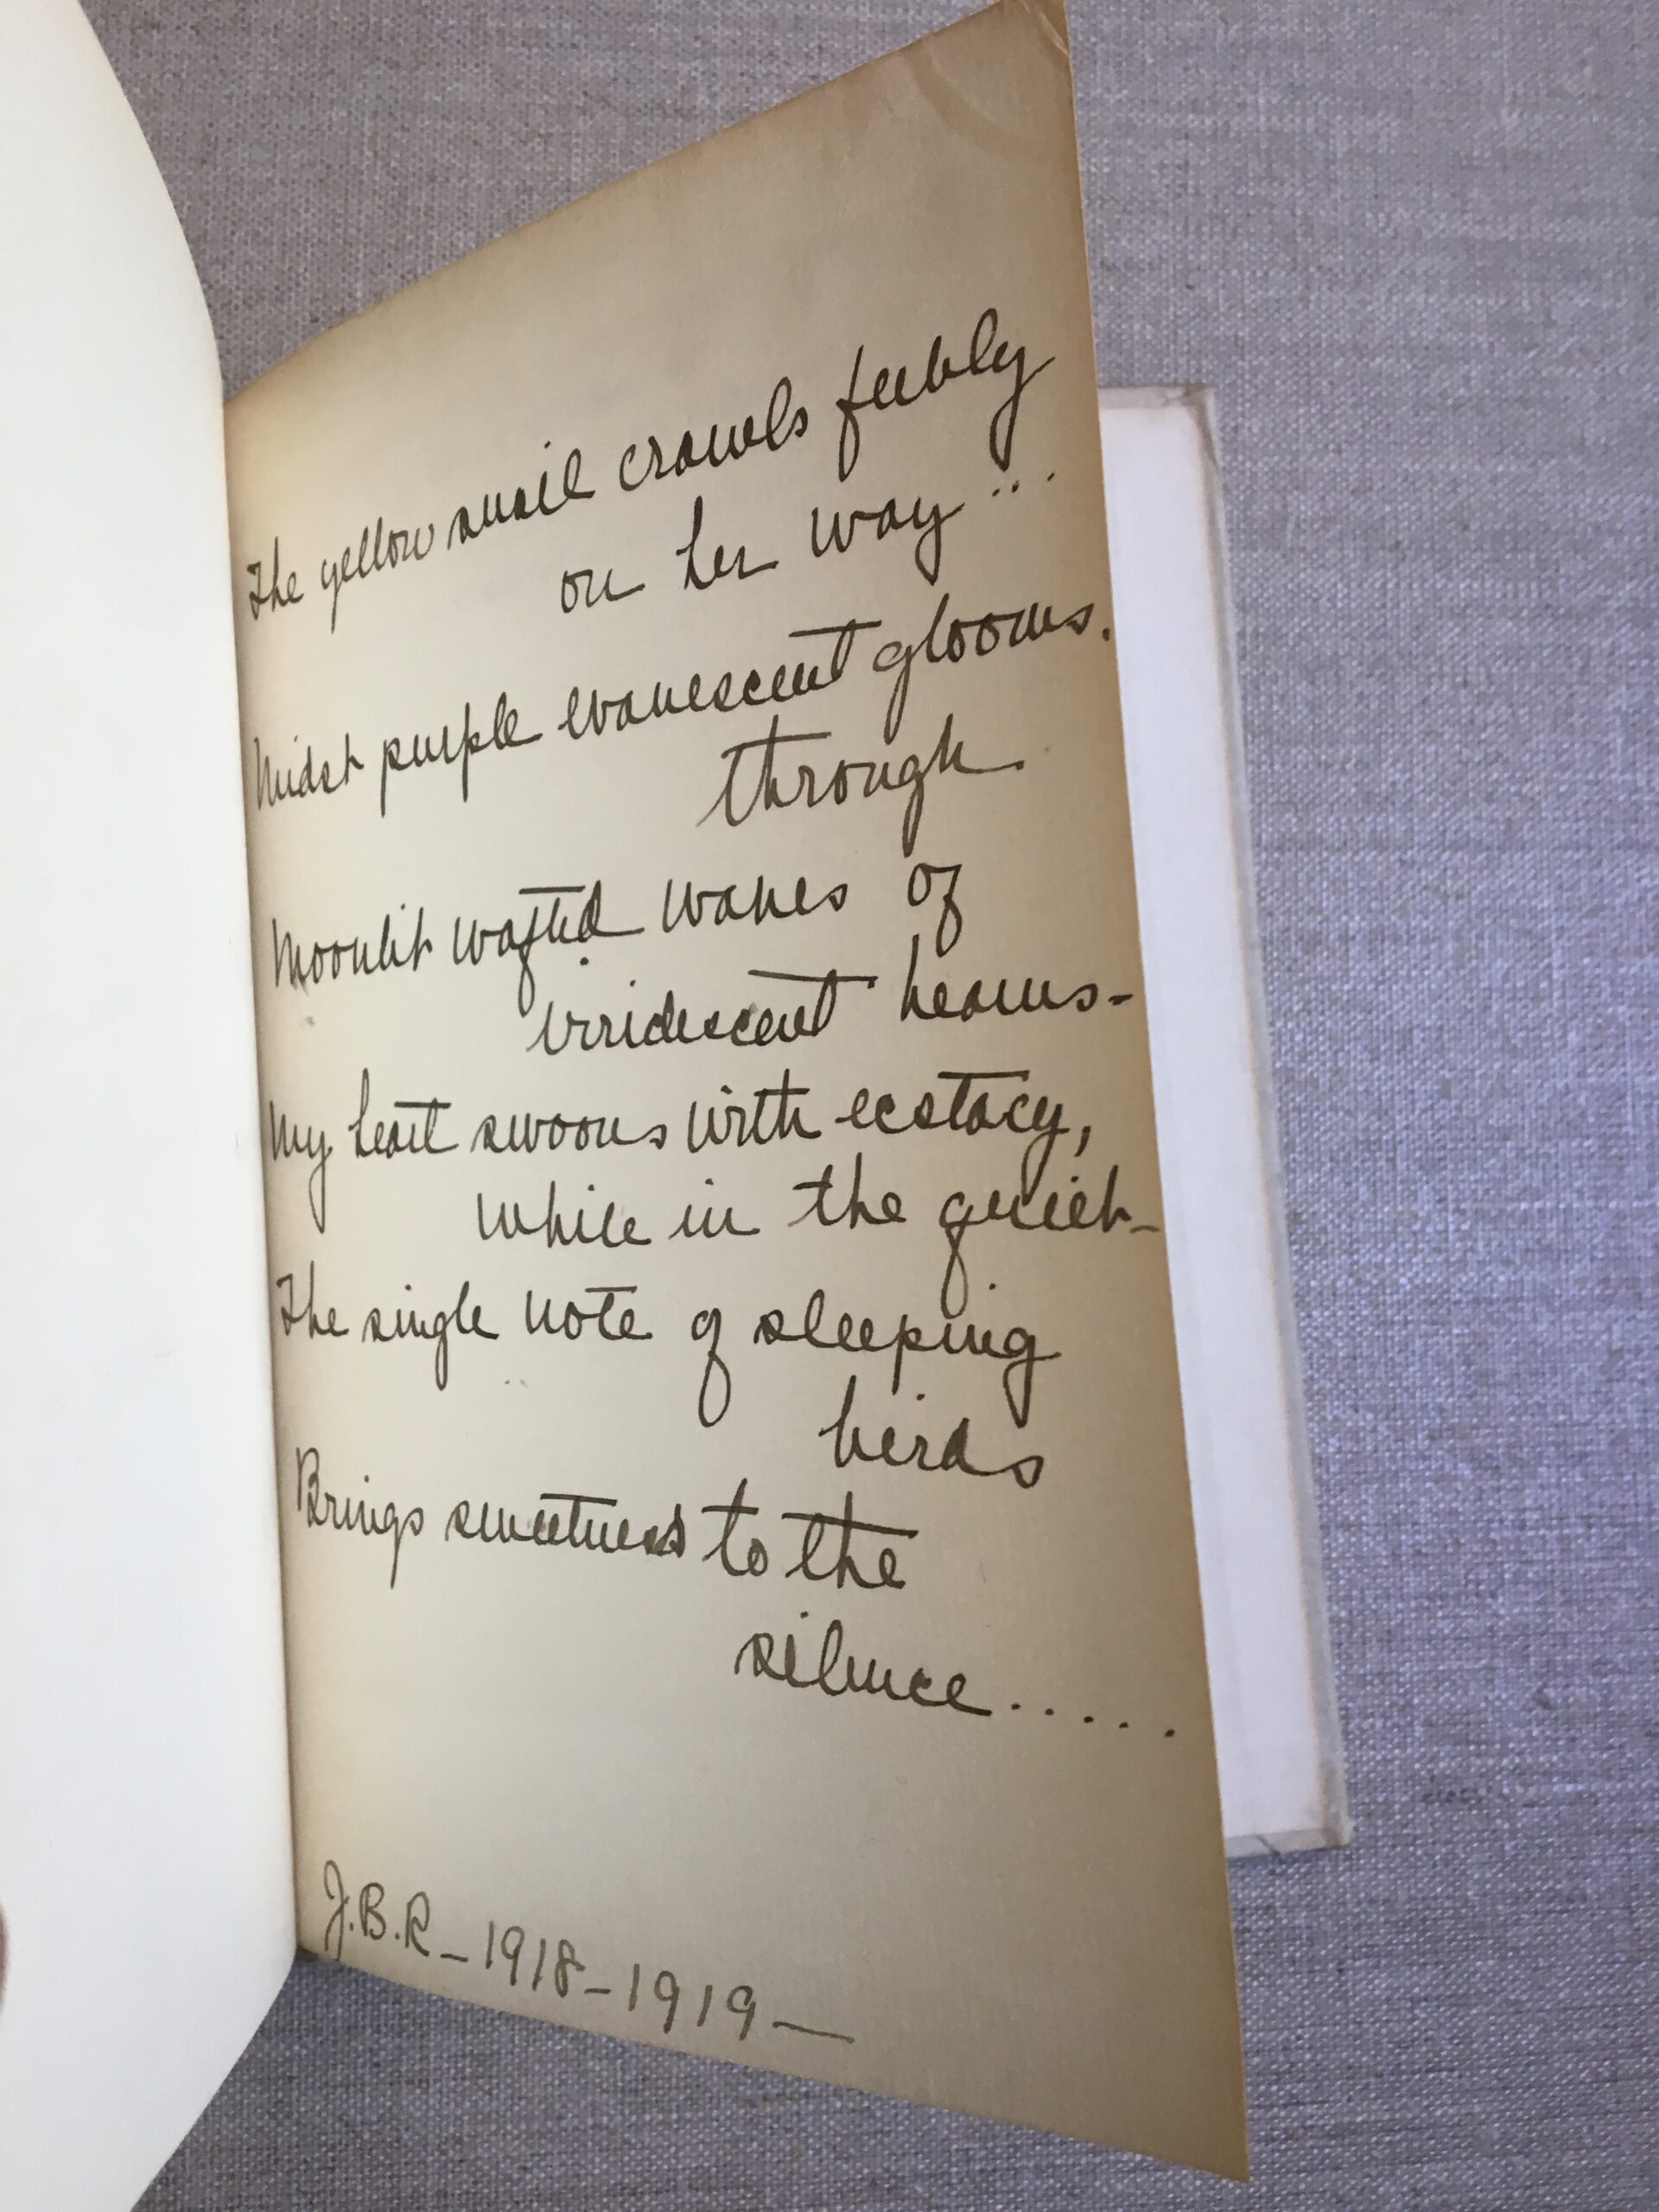 The yellow snail crawls feebly
on her way...
Midst purple evanescent glooms.
through.
Moonlit wafted waves of
irridescent beams-
My heart swoons with ecstacy,
while in the quiet-
The single note of sleeping
birds
Brings sweetness to the
silence.....
J.B.R - 1918 - 1919 -